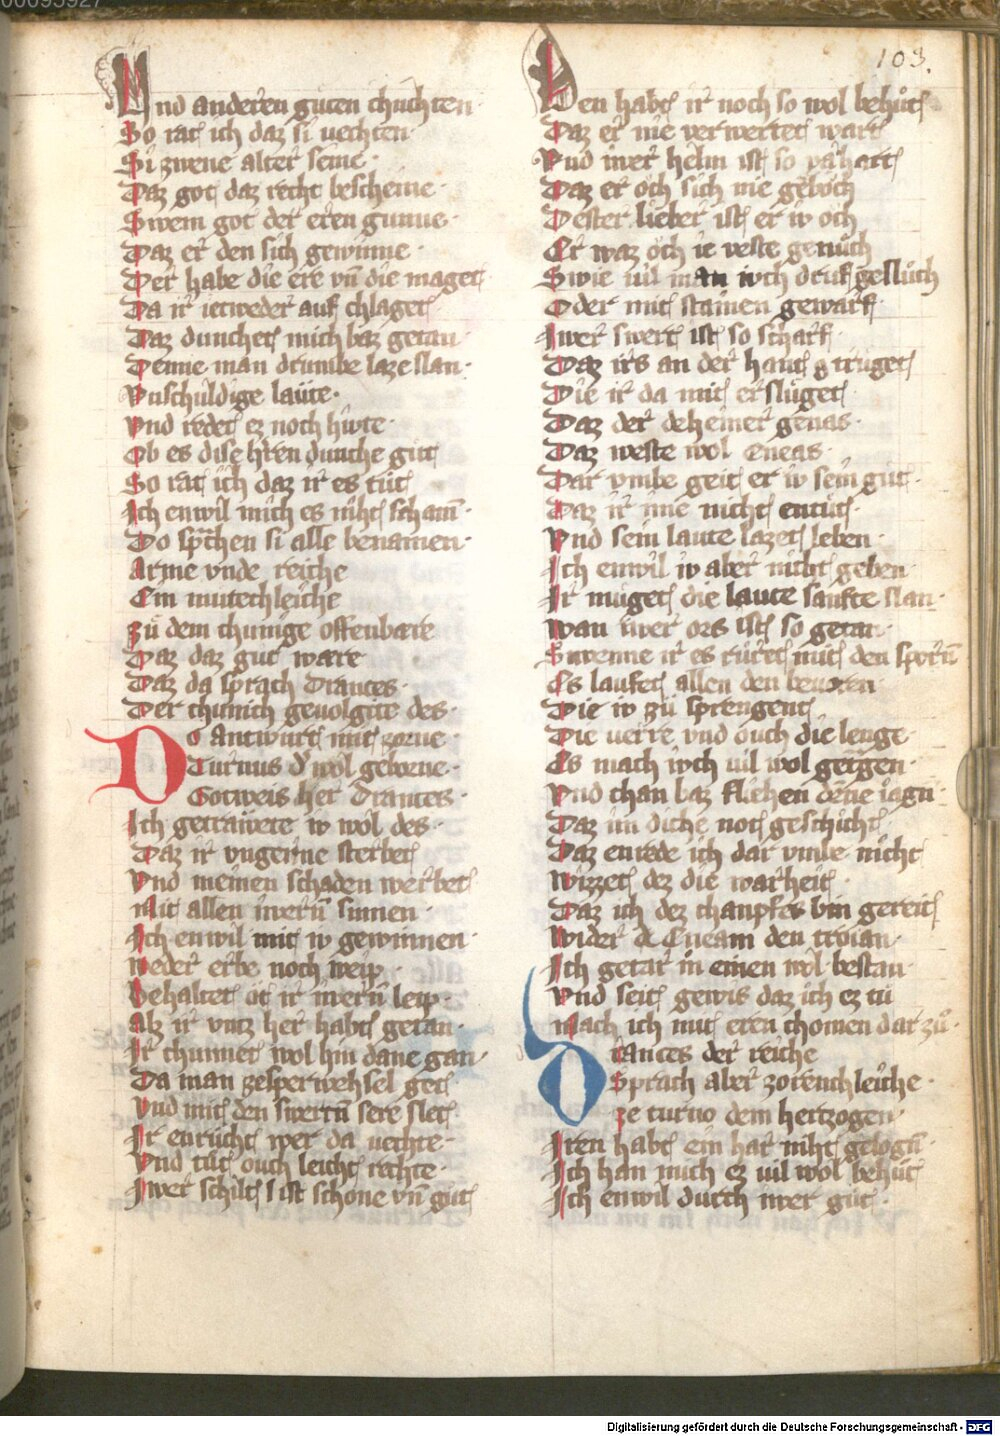 103.
Vnd anderen guten chuchten·
So rat ich daz si vechten·
Si zwene alter seine·
Daz got daz recht bescheine·
Swem got der eren gunne·
Daz er den sich gewinne·
Der habe die ere vn̄ die maget
Da ir ietweder auf chlaget
Daz dunchet mich baz getan·
Denne man drumbe laze slan·
Vnschuldige laüte·
Vnd redet ez noch hiwte·
Ob es dise hren dunche gůt
So rat ich daz ir es tůt
Ich enwil mich es niht scham̄·
Do sprachen si alle benamen·
Arme vnde reiche
Ein mutechleiche
Zů dem chunige offenbare
Daz daz gut ware
Daz da sprach Drances·
Der chunich gevolgite des·
Do Antwurt mit zorne·
Turnus d' wol geborne·
Gotweis her Drances·
Ich getrawete iv wol des·
Daz ir vngerne sterbet
Vnd meinen schaden werbet
Mit allen iwern̄ sinnen·
Ich enwil mit iv gewinnen·
Weder erbe noch weip·
Behaltet ot ir iwern̄ leip·
Alz ir vntz her habt getan·
Ir chunnet wol hin dane gan·
Da man zesperwehsel get
Vnd mit den swertn̄ sere slet
Ir enrůcht wer da vechte·
Vnd tůt ouch leicht rechte·
Iwer schilt ist schone vn̄ gůt
Den habt ir noch so wol behůt
Daz er nie verwertet wart
Vnd iwer helm ist so va hart
Daz er och sich nie geboch
Dester lieber ist er iv och
Er waz och ie veste genůch
Swie uil man ivch druf geslůch
Oder mit stainen gewarf·
Iwer swert ist so scharf·
Daz irs an der hant trůget
Die ir da mit erslůget
Daz der deheiner genas·
Daz weste wol Eneas·
Dar vmbe geit er iv sein gůt·
Daz ir ime nicht entůt·
Vnd sein laute lazet leben·
Ich enwil iv aber nicht geben·
Ir muget die laute sanfte slan·
Wan iwer ors ist so getan·
Swenne ir es růret mit den sporn̄
Es laufet allen den bevoren·
Die iv zů sprengent
Die verre vnd ouch die lenge·
Es mach ivch uil wol getragen·
Vnd chan baz fliehen dene iagn̄·
Daz im diche not geschicht
Daz enrede ich dar vmbe nicht
Wizzet dez die warheit·
Daz ich dez champfes bin gereit
Wider dē Eneam den troian·
Ich getar in einen wol bestan·
Vnd seit gewis daz ich ez tů
Mach ich mit eren chomen dar zů·
Drances der reiche
Sprach aber zorenchleiche·
ze turno dem hertzogen·
Iren habt ein har niht gelogn̄·
Ich han mich ez uil wol behůt
Ich enwil durch iwer gůt·
Digitalisierung gefördert durch die Deutsche Forschungsgemeinschaft - DFG